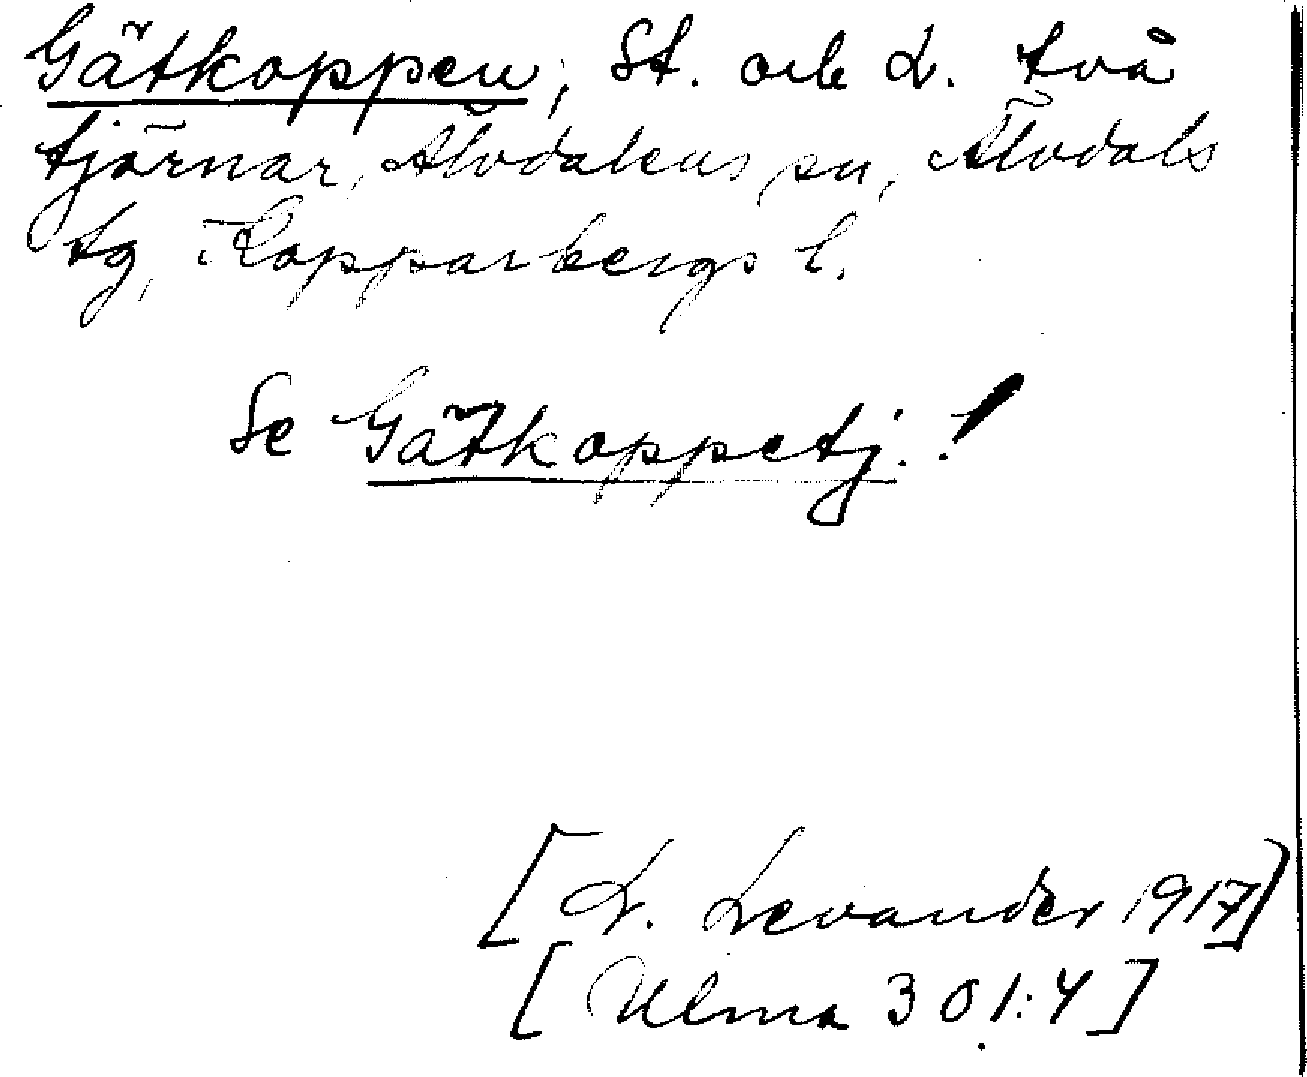 Gätkoppen, St. och L. två
tjärnar, Älvdalens sn, Älvdals
tg, Kopparbergs l.
Se Gätkoppetj.!
[L. Levander 1917]
[Ulma 301:4]